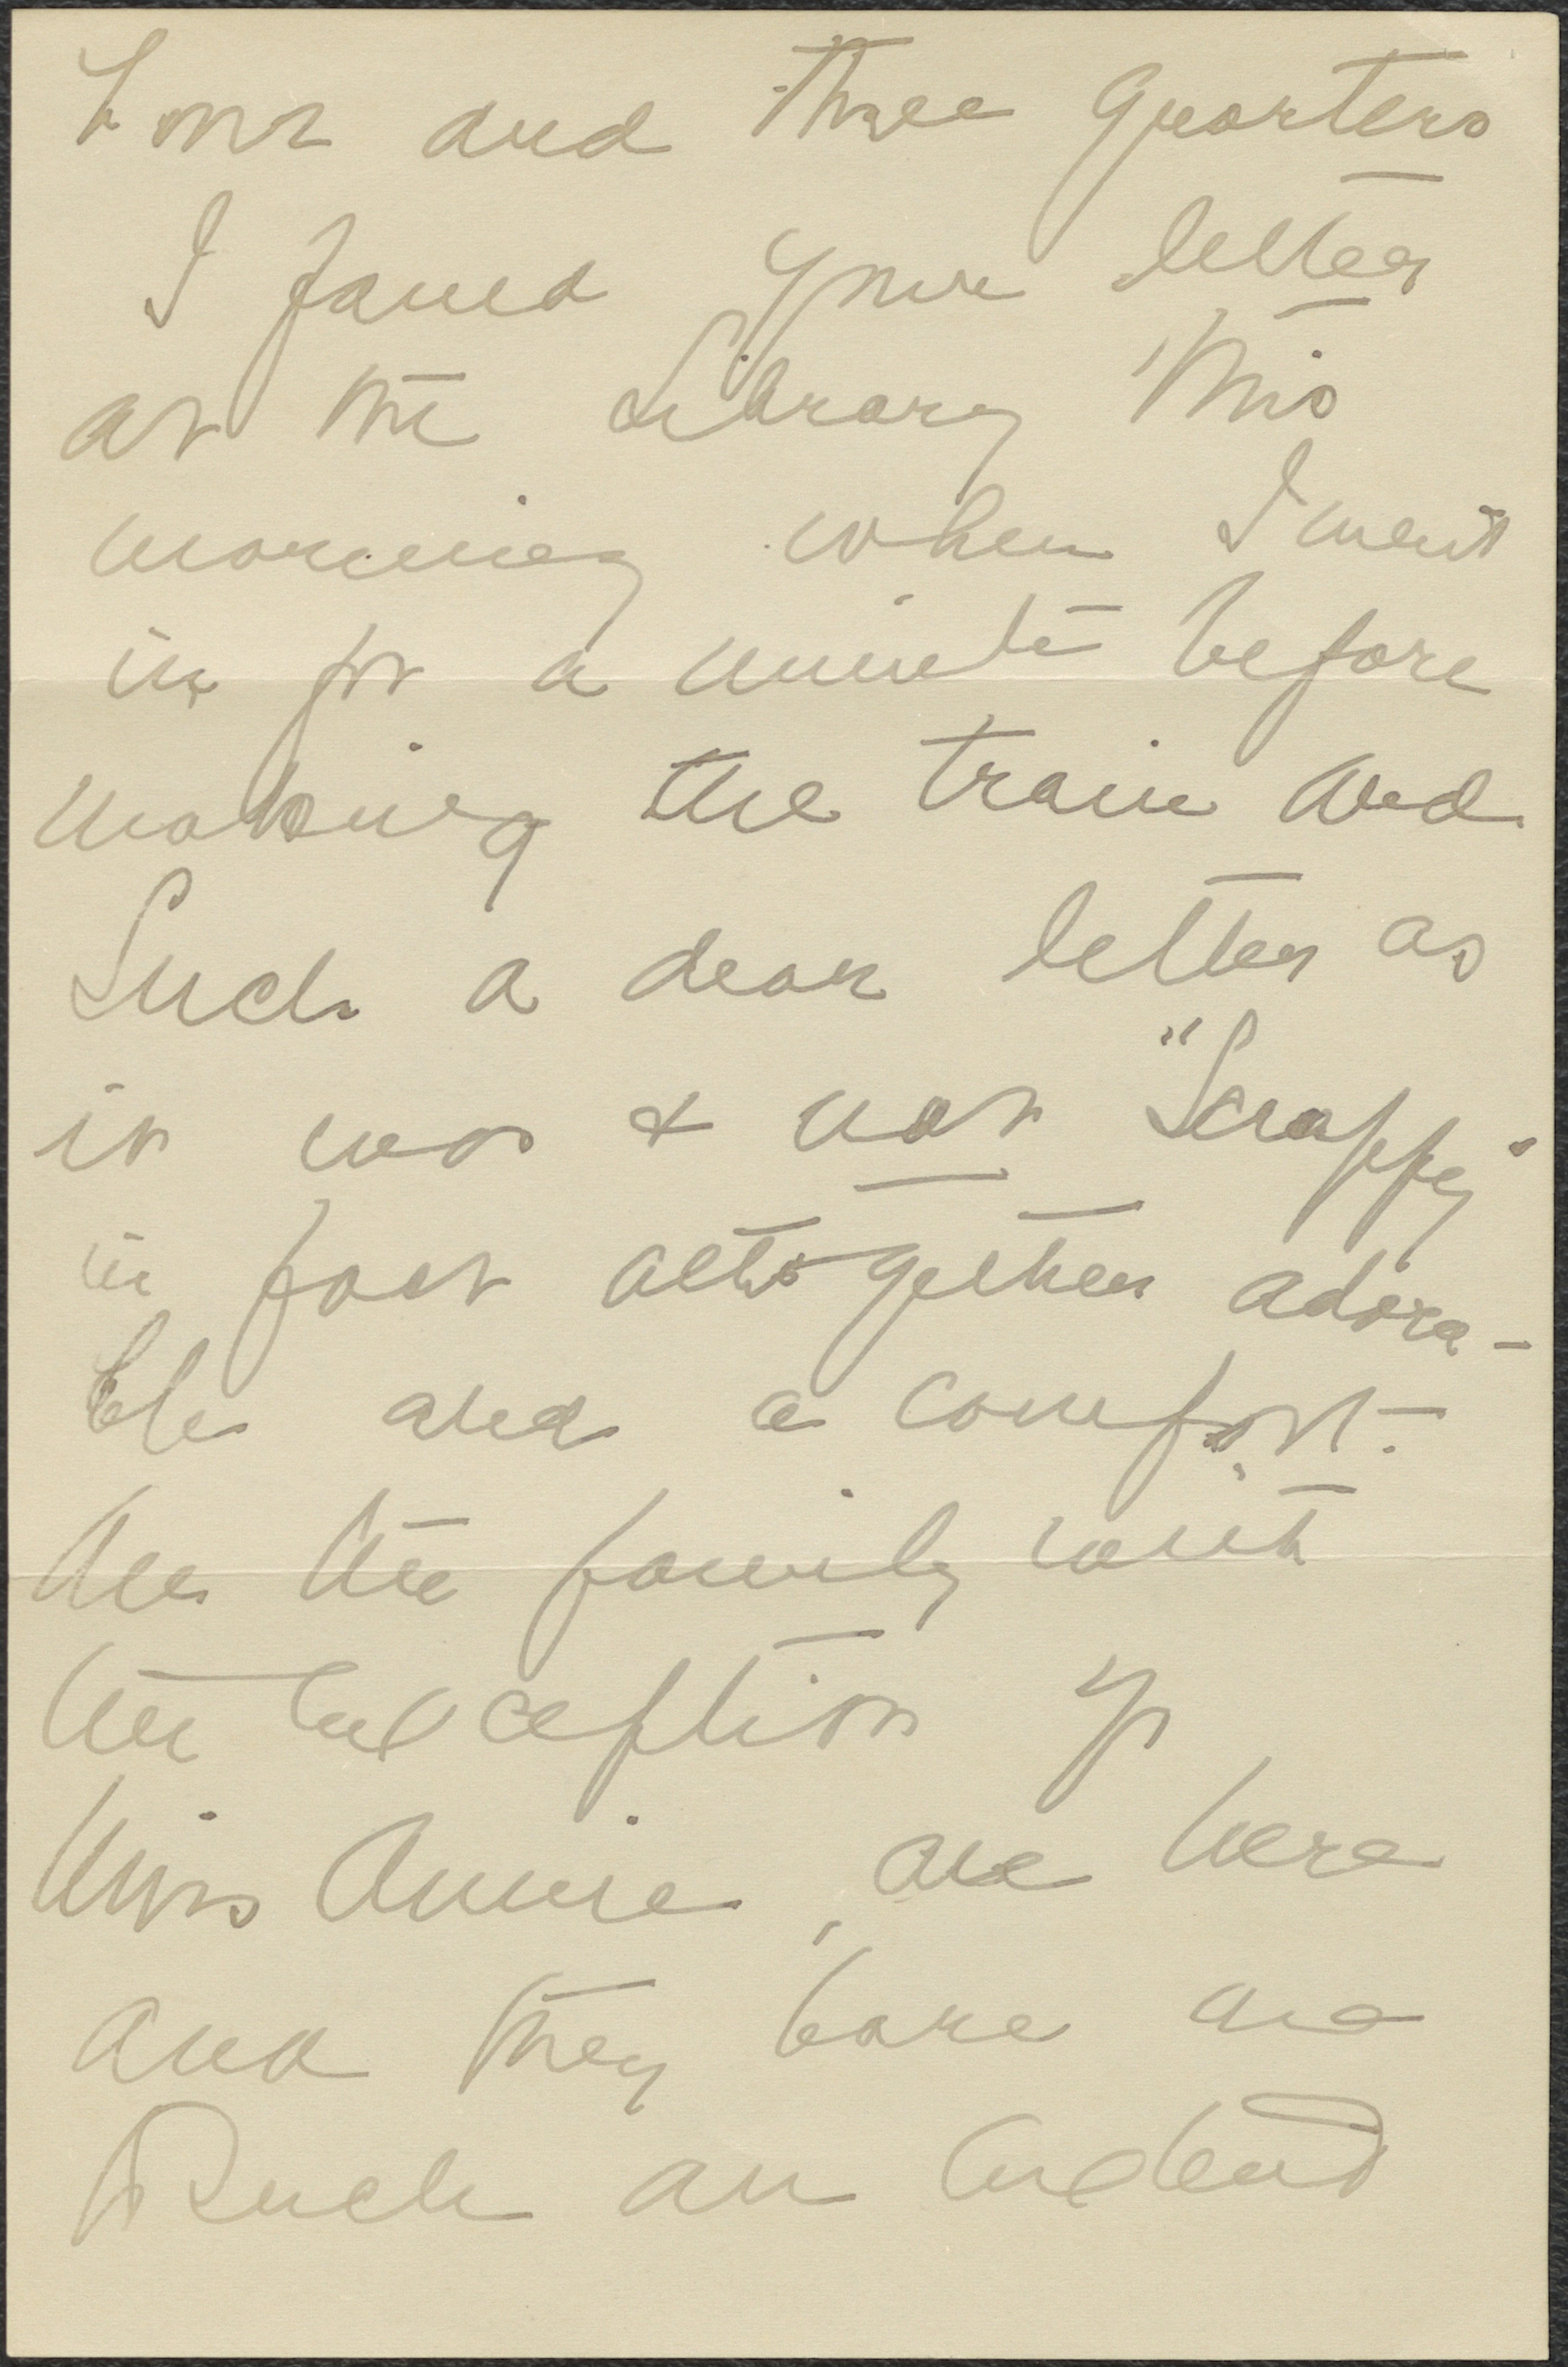 hour and three quarters
I found your letter
at the Library this
morning when I went
in for a minute before
making the train and
Such a dear letter as
it was & not "Scrappy"
in fact altogether adora-
ble and a comfort.
All the family with
the exception of
Miss Annie, are here
and they bore me
to such an extent